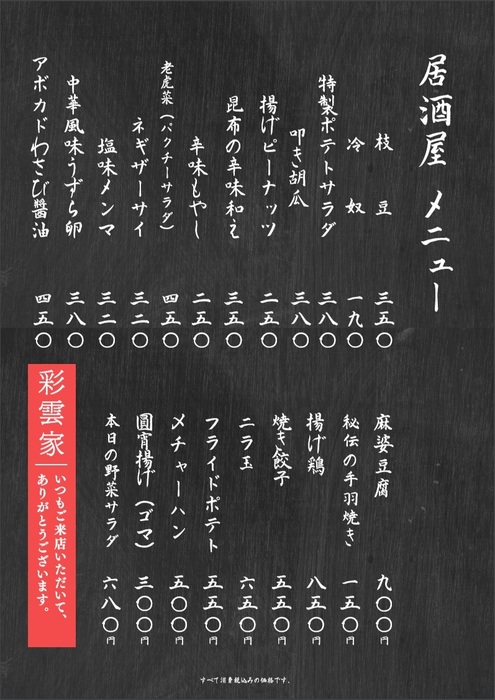 居酒屋 メニュー
枝豆 三五〇
冷奴 一九〇
特製ポテトサラダ 三八〇
叩き胡瓜 三八〇
揚げピーナッツ 二五〇
昆布の辛味和え 三五〇
辛味もやし 二五〇
老虎菜（パクチーサラダ） 四五〇
ネギザーサイ 三二〇
塩味メンマ 三二〇
中華風味うずら卵 三八〇
アボカドわさび醤油 四五〇
麻婆豆腐 九〇〇円
秘伝の手羽焼き 一五〇円
揚げ鶏 八五〇円
焼き餃子 五五〇円
ニラ玉 六五〇円
フライドポテト 五五〇円
メチャーハン 五〇〇円
圓宵揚げ（ゴマ） 三〇〇円
本日の野菜サラダ 六八〇円
彩雲家
いつもご来店いただいて、
ありがとうございます。
すべて消費税込みの価格です。